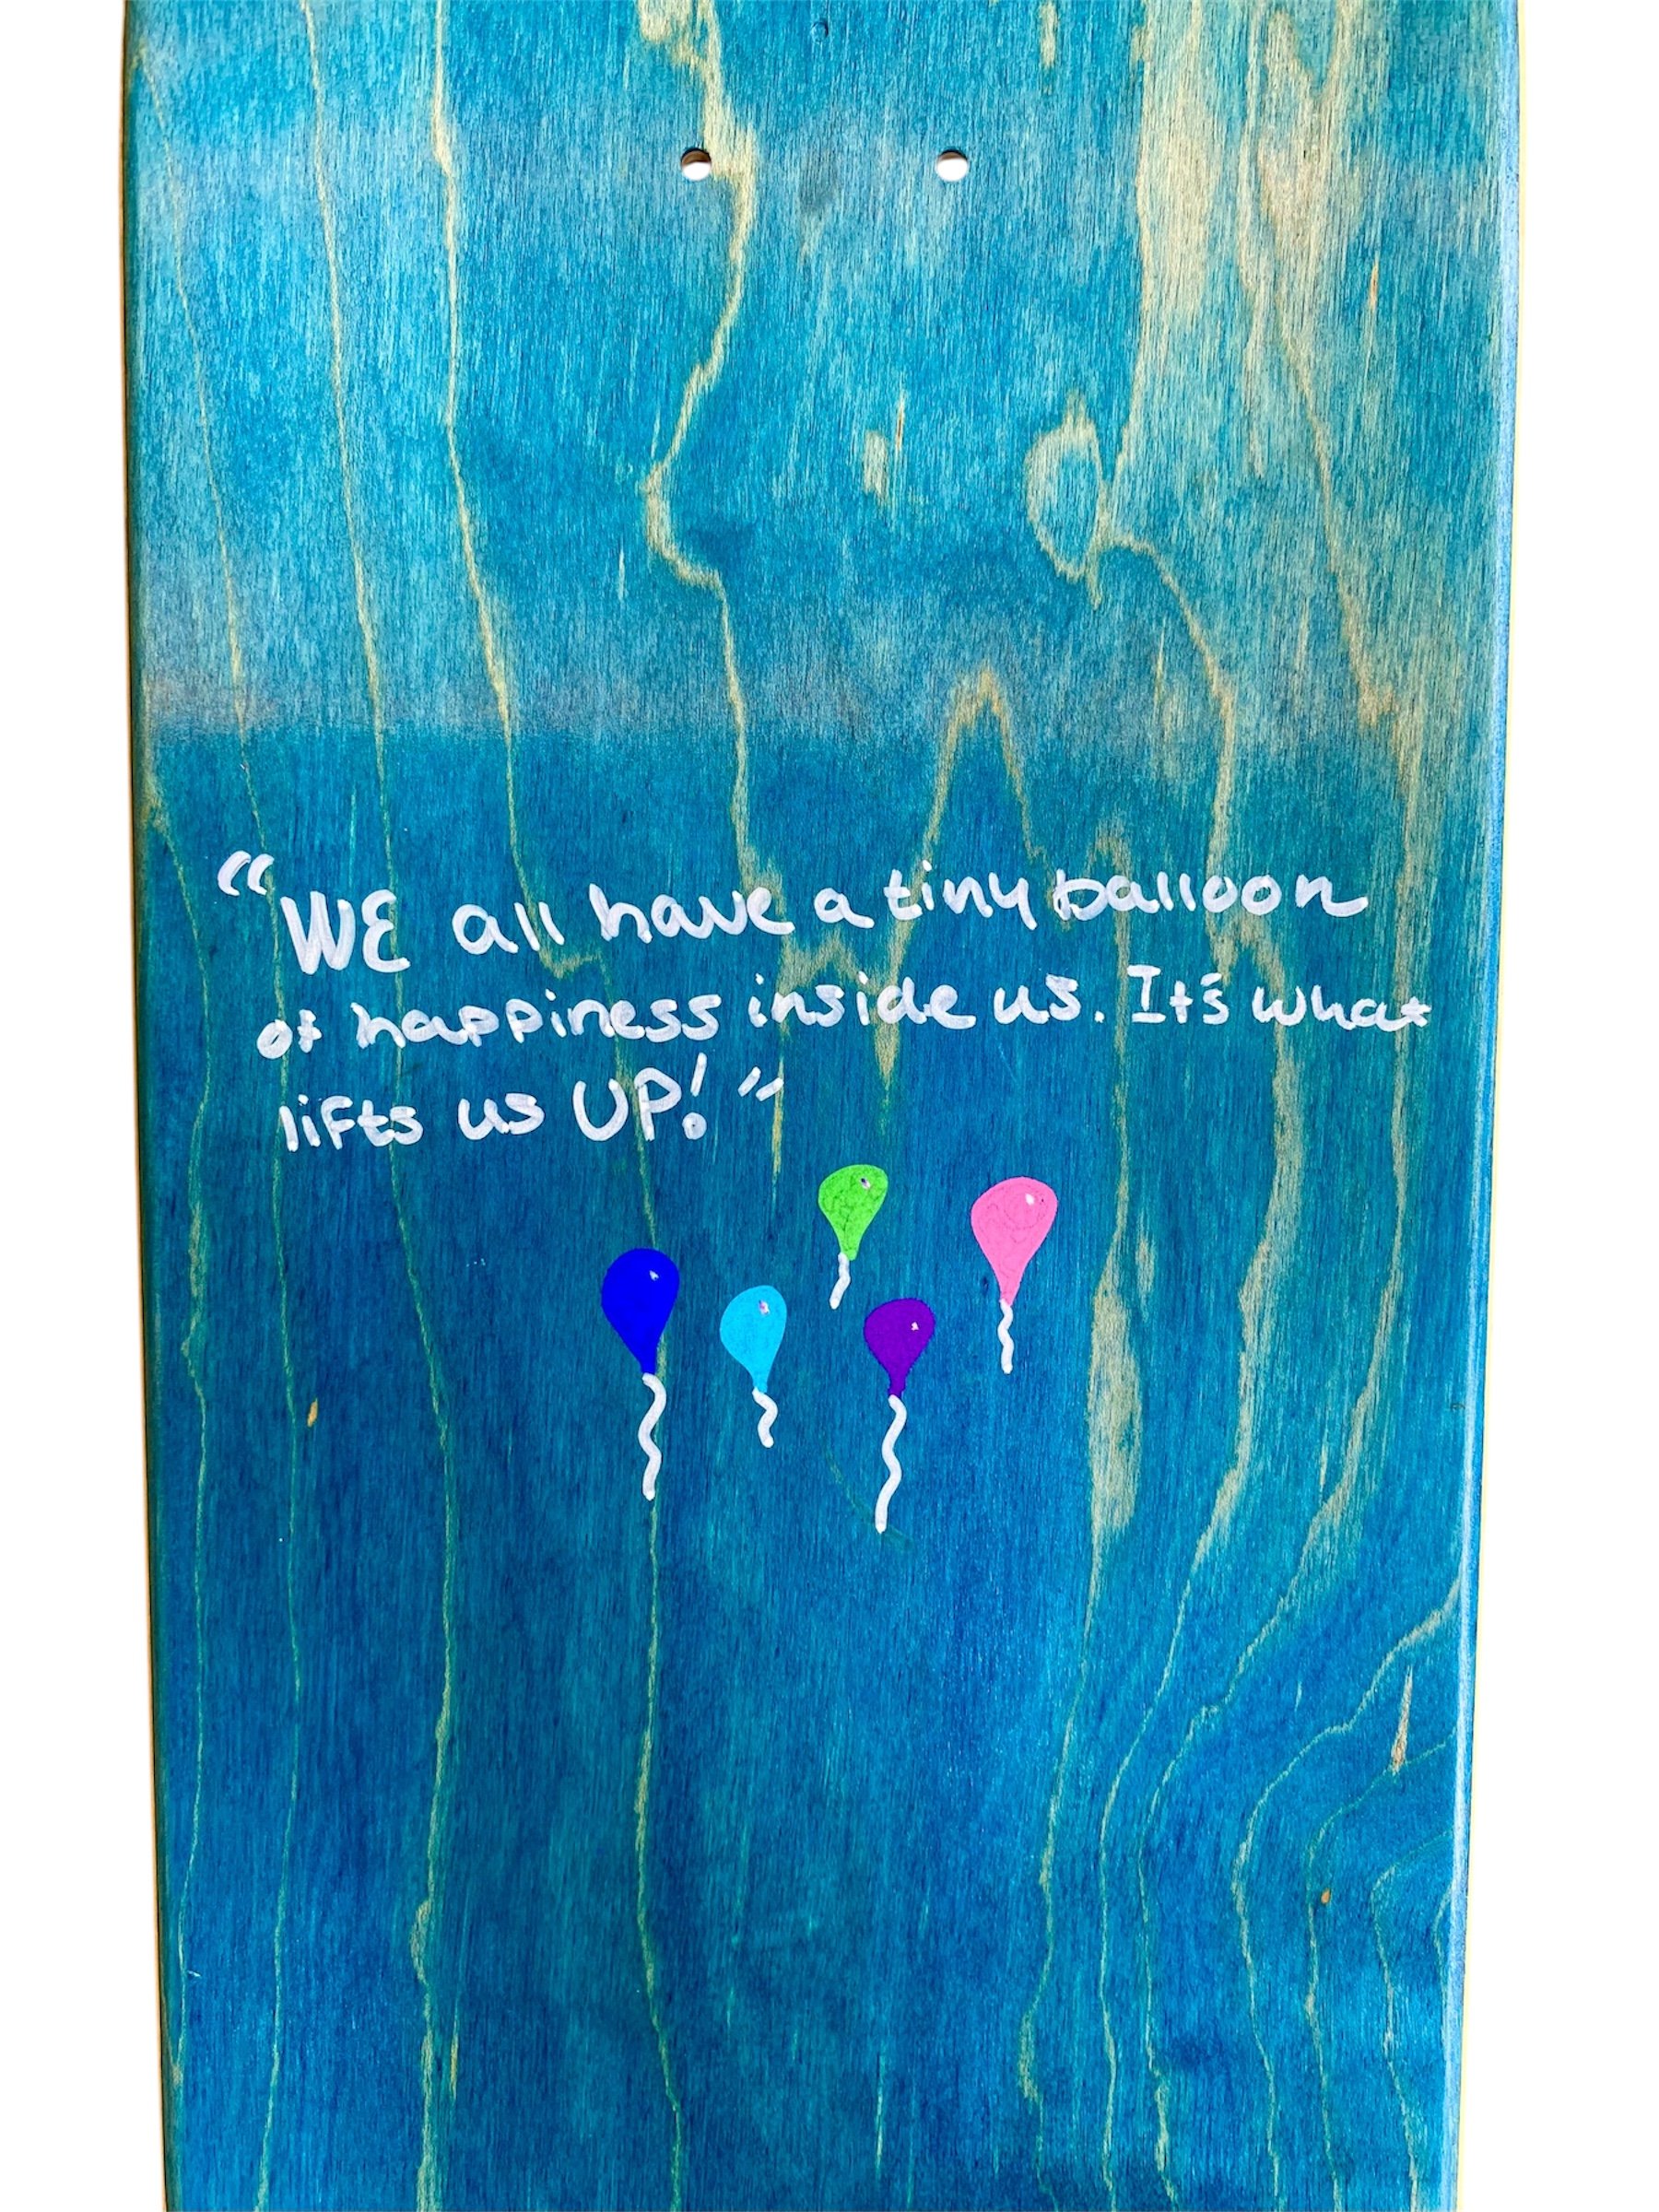 “WE all have a tiny balloon
of happiness inside us. It's what
lifts us UP!”